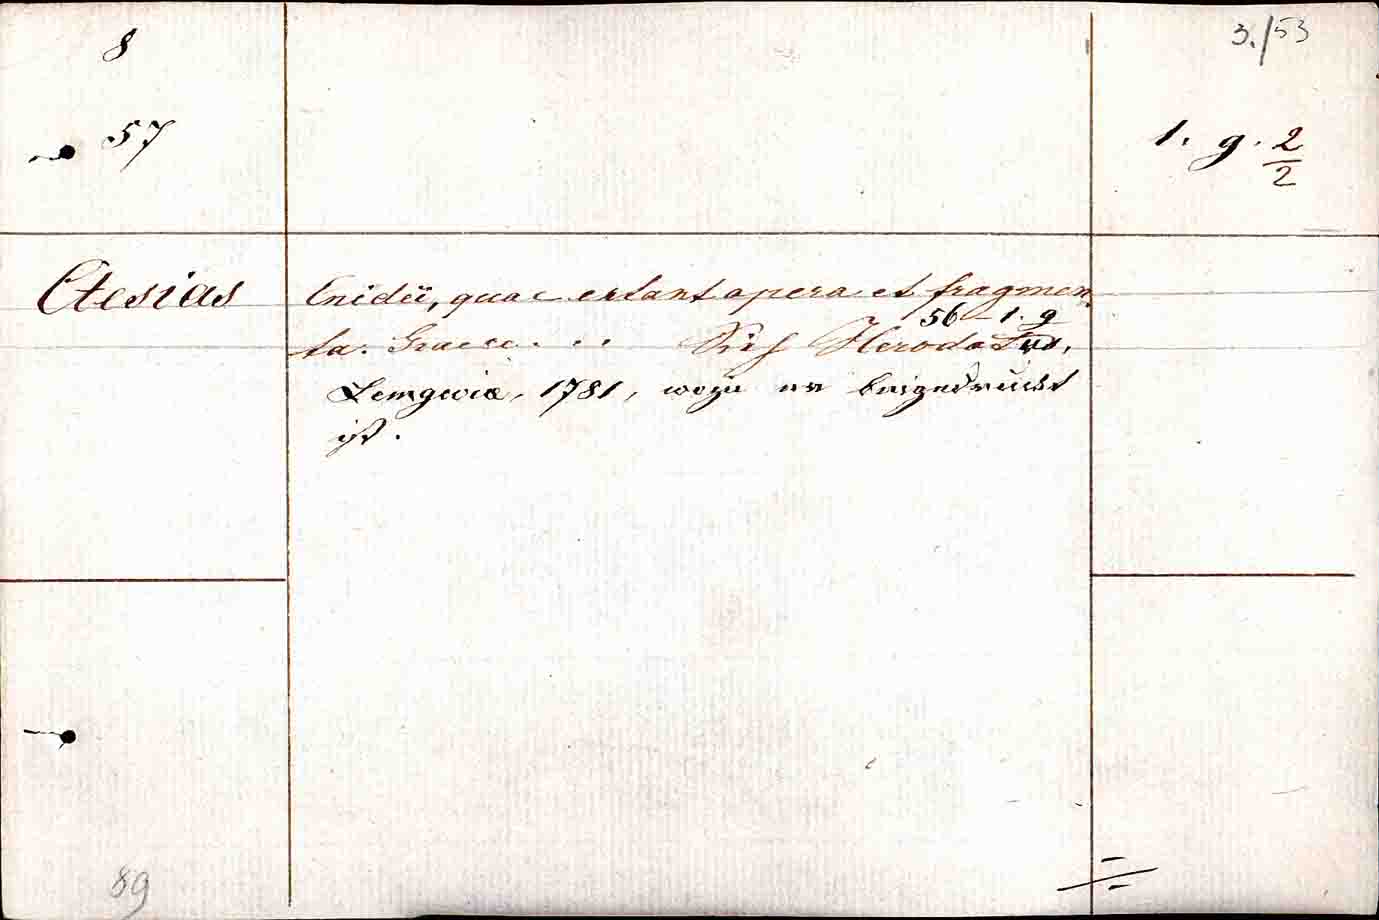 8
3./53
57
1. g. 2/2
Ctesias Cnidii, quae extant opera et fragmen
56 1. g
ta. Graece. . . Sieh Herodotus,
Lemgoviae, 1781, wozu er beigedruckt
ist.
89